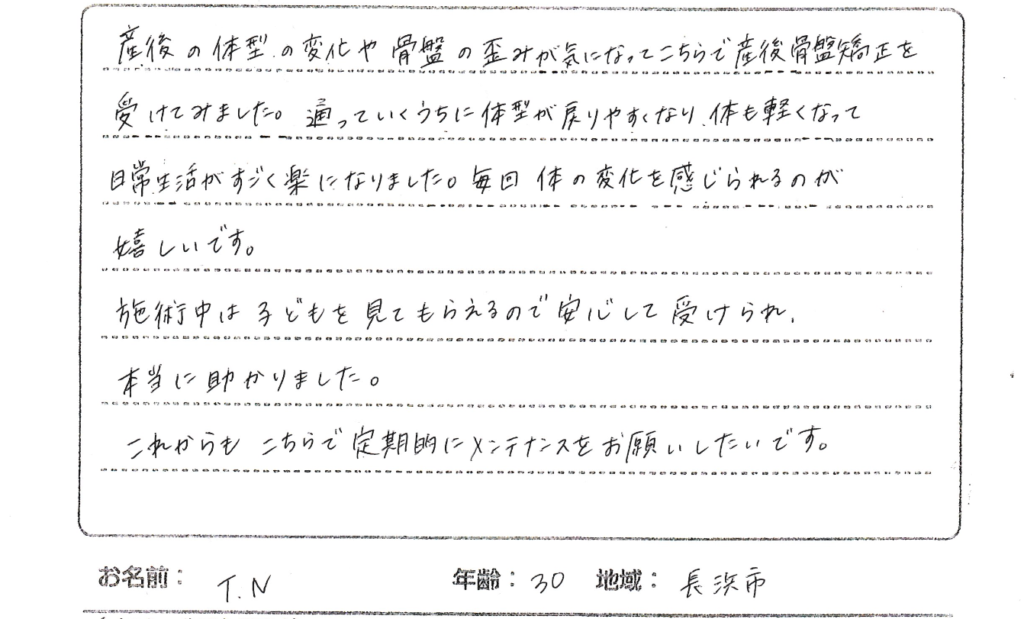 産後の体型の変化や骨盤の歪みが気になってこちらで産後骨盤矯正を
受けてみました。通っていくうちに体型が戻りやすくなり、体も軽くなって
日常生活がすごく楽になりました。毎回 体の変化を感じられるのが
嬉しいです。
施術中は子どもを見てもらえるので安心して受けられ、
本当に助かりました。
これからも こちらで定期的にメンテナンスをお願いしたいです。
お名前： T.N 年齢：30 地域：長浜市